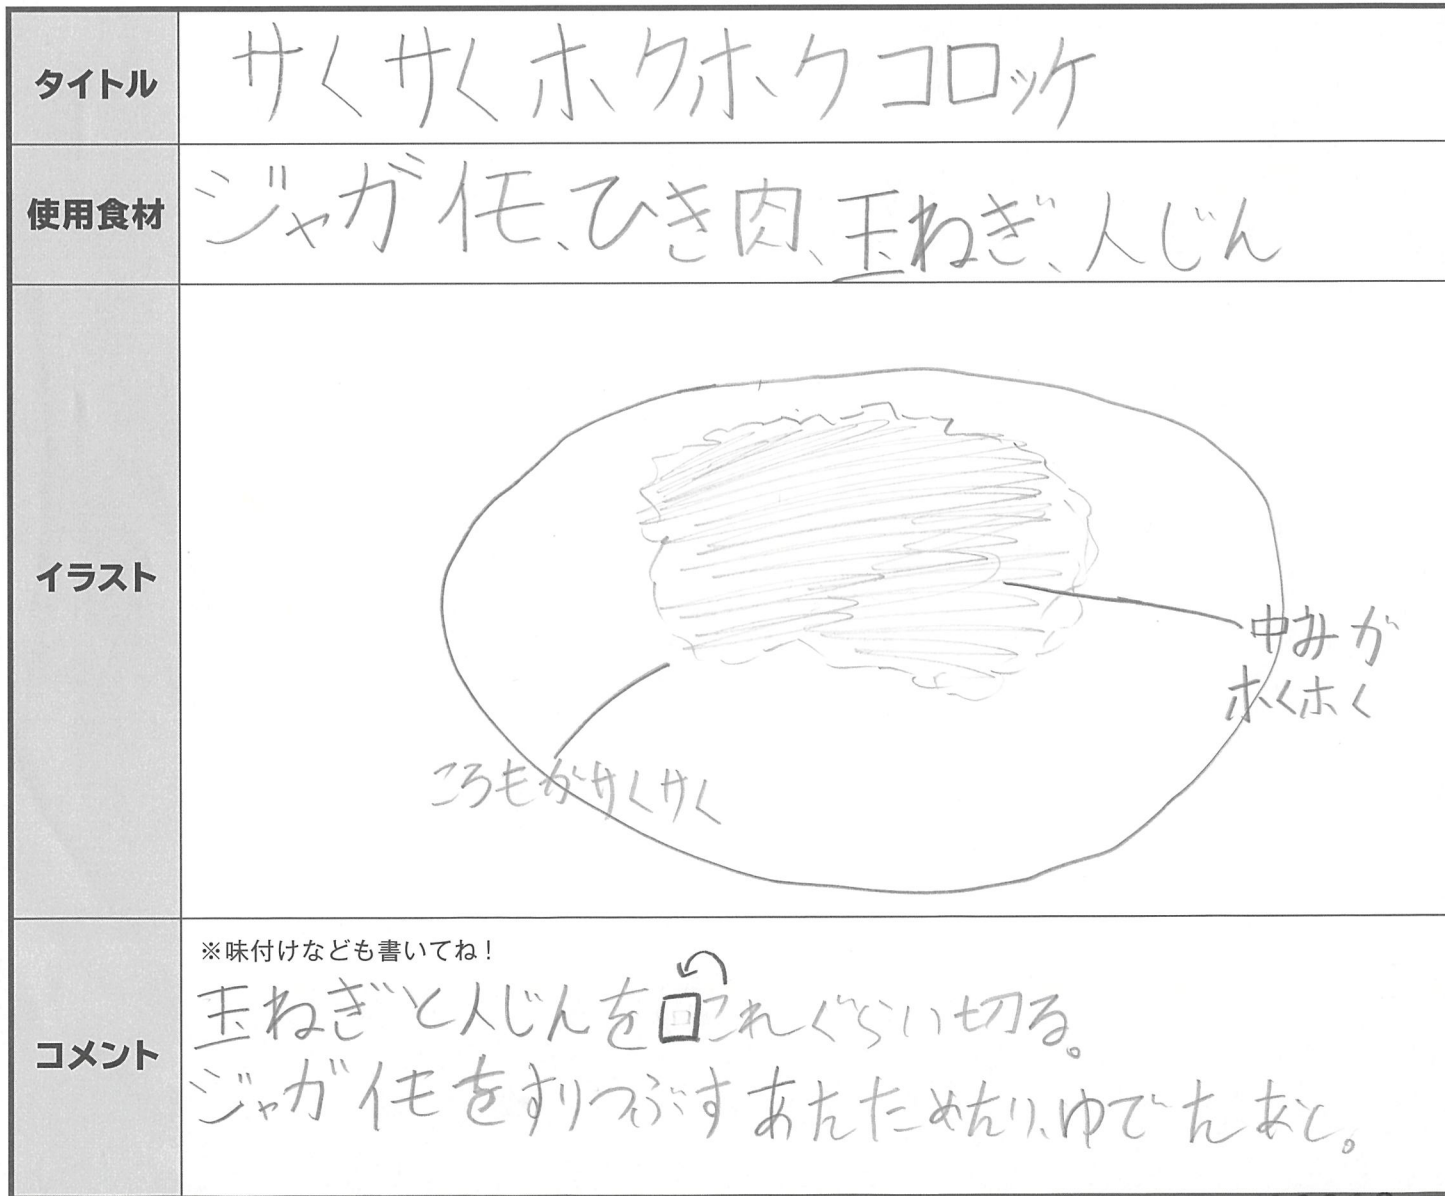 タイトル
サくサくホクホクコロッケ
使用食材
ジャガイモ、ひき肉、玉ねぎ、人じん
イラスト
中みが
ホくホく
ころもがサくサく
コメント
※味付けなども書いてね！
玉ねぎと人じんを□これぐらい切る。
ジャガイモをすりつぶすあたためたり、ゆでたあと。